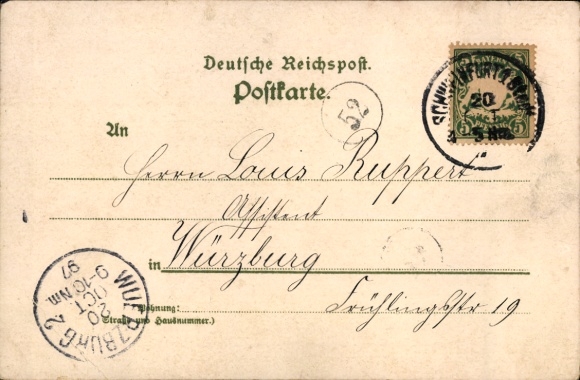 Deutsche Reichspost.
Postkarte.
52
SCHWEINFURT
20
5 Nm.
An
Herrn Louis Ruppert
Assistent
in Würzburg
Wohnung:
(Straße und Hausnummer.)
Frühlingsstr 19
WUERZBURG 2
20
OCT
9-10 Nm.
97